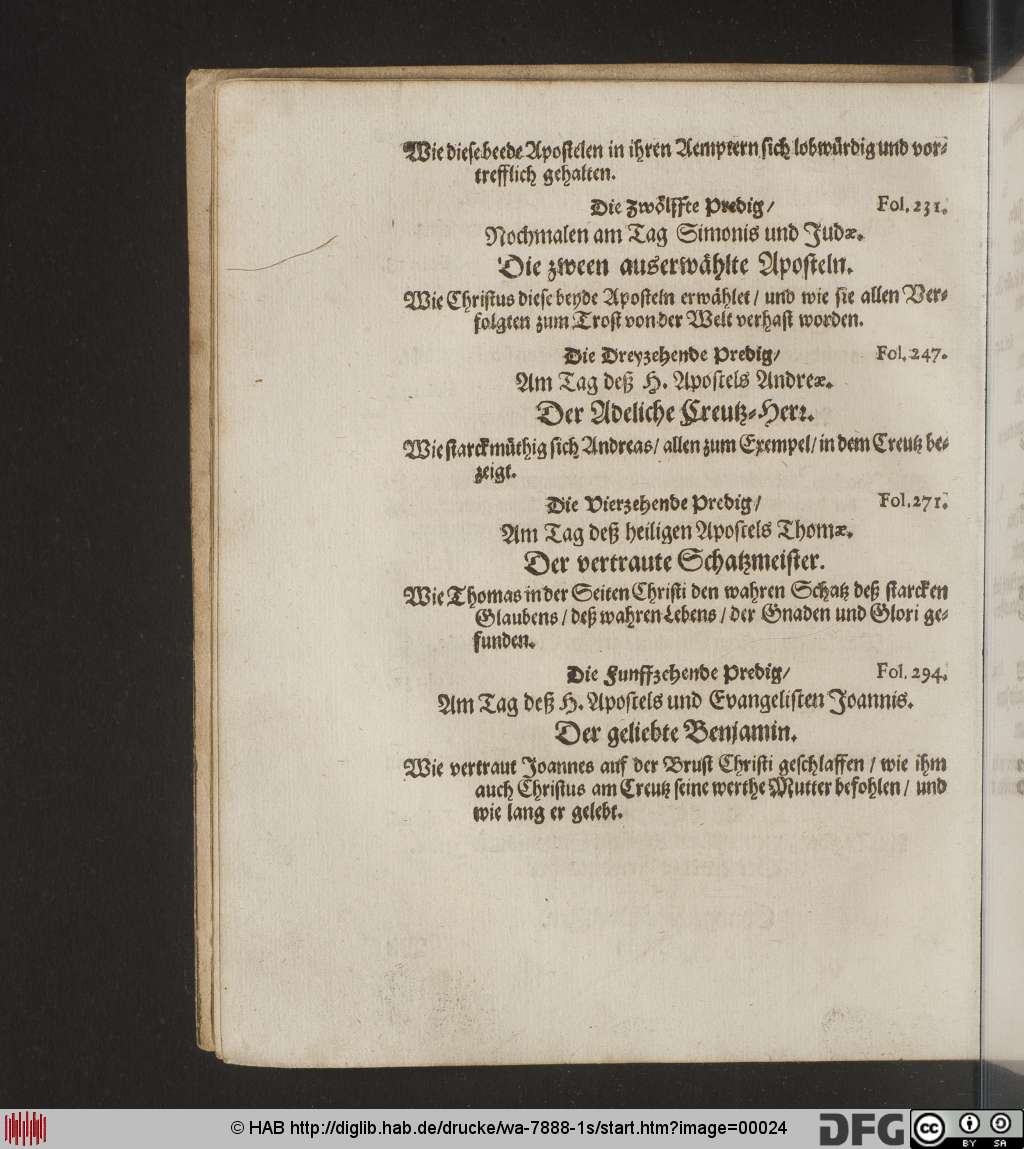 Wie diese beede Apostelen in ihren Aemptern sich lobwürdig und vor-
trefflich gehalten.
Die Zwölffte Predig/ Fol. 231.
Nochmalen am Tag Simonis und Judæ.
Die zween auserwählte Aposteln.
Wie Christus diese beyde Aposteln erwählet / und wie sie allen Ver-
folgten zum Trost von der Welt verhast worden.
Die Dreyzehende Predig/ Fol. 247.
Am Tag deß H. Apostels Andreæ.
Der Adeliche Creutz-Herr.
Wie starckmüthig sich Andreas/ allen zum Exempel/ in dem Creutz be-
zeigt.
Die Vierzehende Predig/ Fol. 271.
Am Tag deß heiligen Apostels Thomæ.
Der vertraute Schatzmeister.
Wie Thomas in der Seiten Christi den wahren Schatz deß starcken
Glaubens / deß wahren Lebens / der Gnaden und Glori ge-
funden.
Die Funffzehende Predig/ Fol. 294.
Am Tag deß H. Apostels und Evangelisten Joannis.
Der geliebte Benjamin.
Wie vertraut Joannes auf der Brust Christi geschlaffen / wie ihm
auch Christus am Creutz seine werthe Mutter befohlen / und
wie lang er gelebt.
© HAB http://diglib.hab.de/drucke/wa-7888-1s/start.htm?image=00024
DFG
cc BY SA